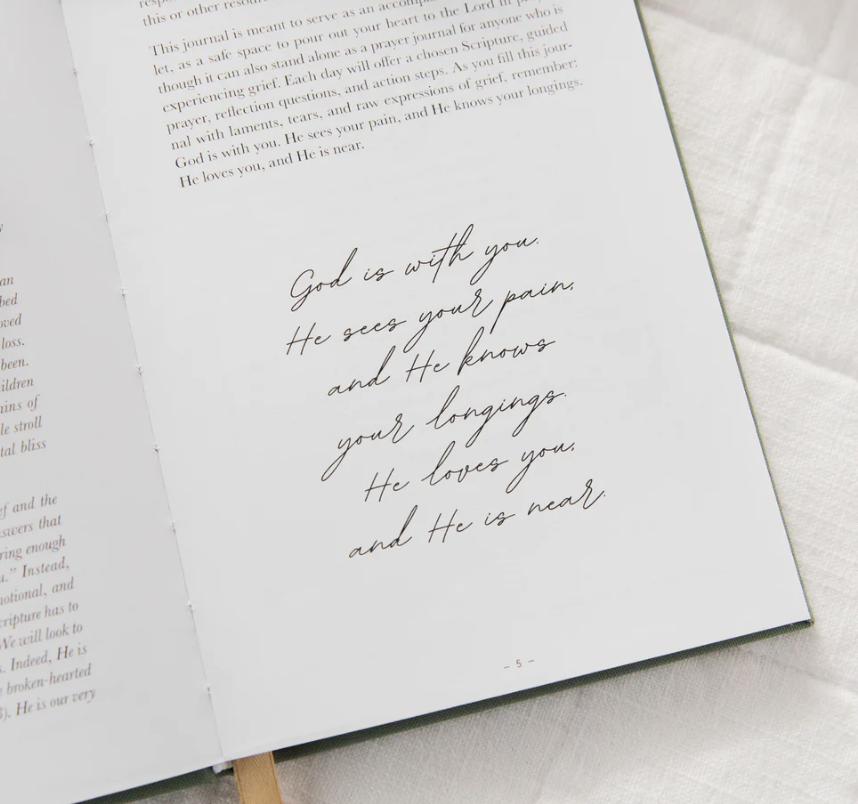 an
bed
oved
loss.
been.
ildren
ains of
le stroll
tal bliss
ef and the
swers that
ring enough
u.” Instead,
notional, and
cripture has to
We will look to
s. Indeed, He is
broken-hearted
8). He is our very
this or other
This journal is meant to serve as an
let, as a safe space to pour out your heart to the Lord in
though it can also stand alone as a prayer journal for anyone who is
experiencing grief. Each day will offer a chosen Scripture, guided
prayer, reflection questions, and action steps. As you fill this jour-
nal with laments, tears, and raw expressions of grief, remember:
God is with you. He sees your pain, and He knows your longings.
He loves you, and He is near.
God is with you.
He sees your pain,
and He knows
your longings.
He loves you,
and He is near.
– 5 –